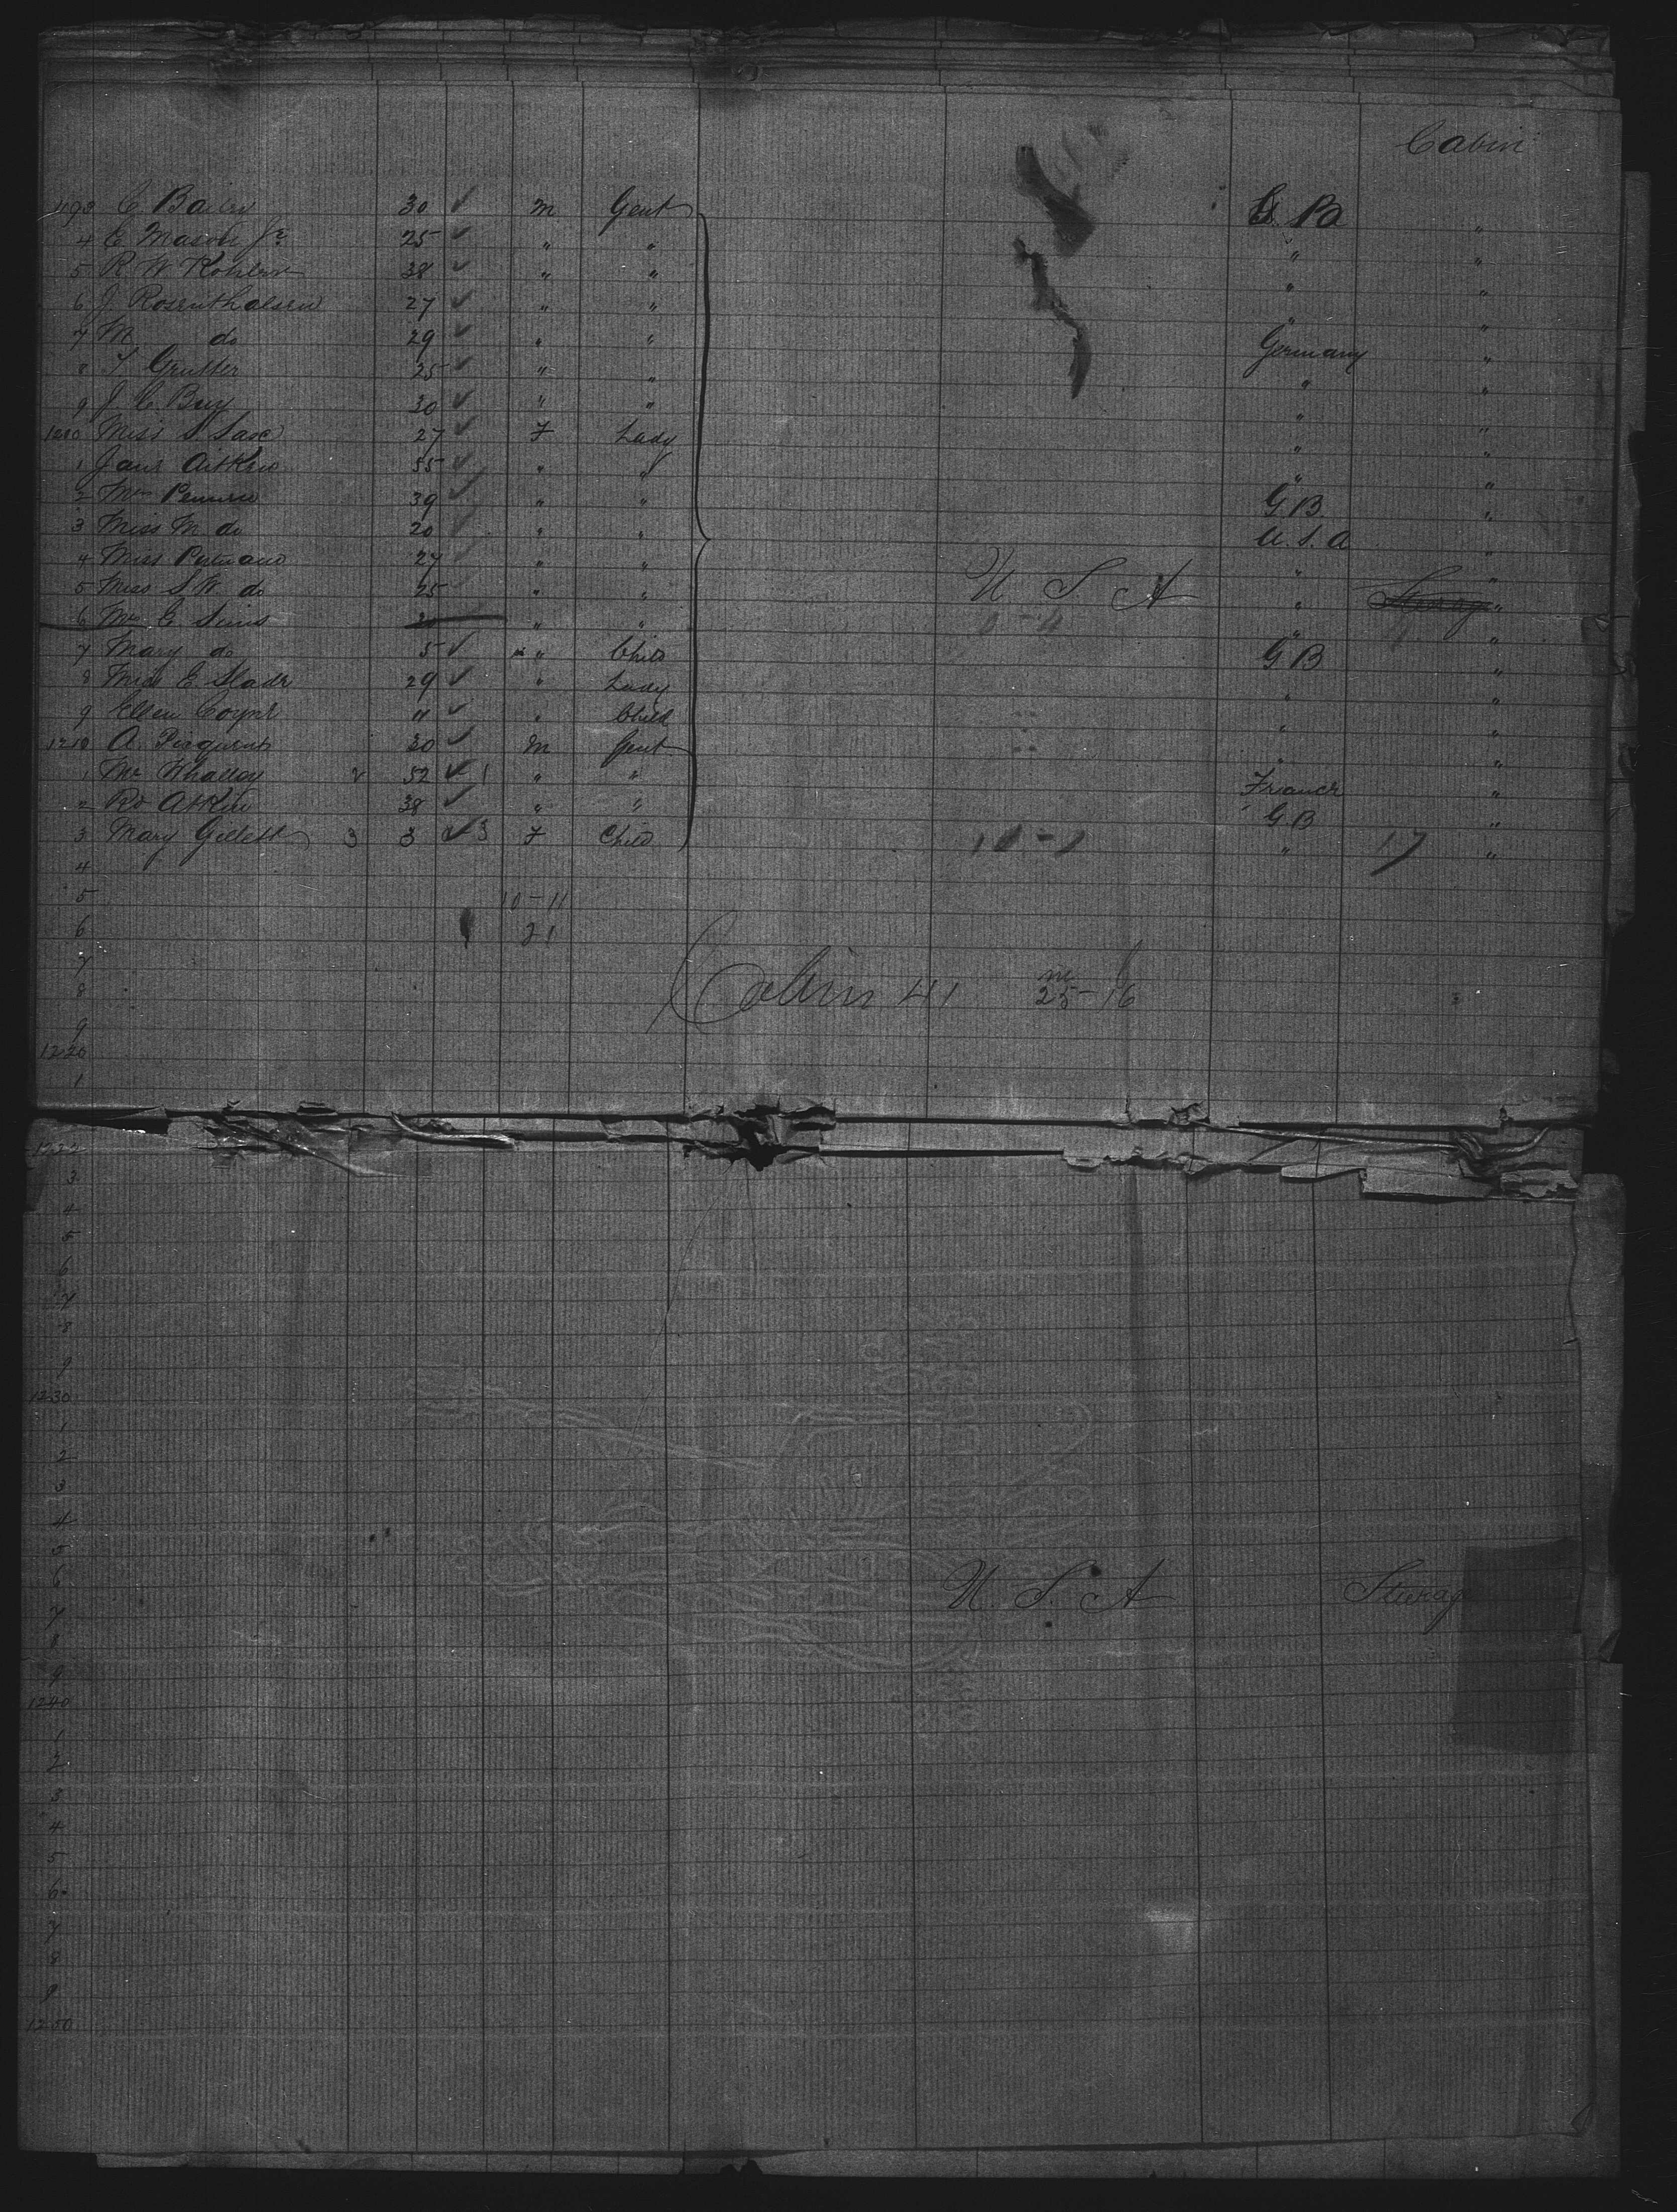 Cabin
1193 C Bailey 30 ✓ M Gent G. B "
4 E Mason Jr 25 ✓ " " " "
5 R W Kohler 38 ✓ " " " "
6 J Rosenthalsen 27 ✓ " " " "
7 M do 29 ✓ " " Germany "
8 T Grutter 25 ✓ " " " "
9 J C Bey 30 ✓ " " " "
1200 Miss S Saxe 27 ✓ F Lady " "
1 Jane Aitken 55 ✓ " " " "
2 Mrs 39 ✓ " " G B "
3 Miss M do 20 ✓ " " U. S. A "
4 Miss 27 " " " "
5 Miss S. W. do 25 " " U S A " Steerage "
6 Mrs E Sims " " " "
7 Mary do 5 ✓ " Child G B "
8 Miss E Slade 29 ✓ " Lady " "
9 Ellen Coyne 11 ✓ " Child " "
1210 A. 30 ✓ M Gent " "
1 Mr Whalley 52 ✓ 1 " " France "
2 Ro Atkin 38 ✓ " " G B "
3 Mary Gillett 3 3 ✓ 3 F Child " 17 "
4
5 10-11
6 21
7
8 Cabin 41 m 25-16
9
1220
1
1222
3
4
5
6
7
8
9
1230
1
2
3
4
5
6 U. S. A Steerag
7
8
9
1240
1
2
3
4
5
6
7
8
9
1250